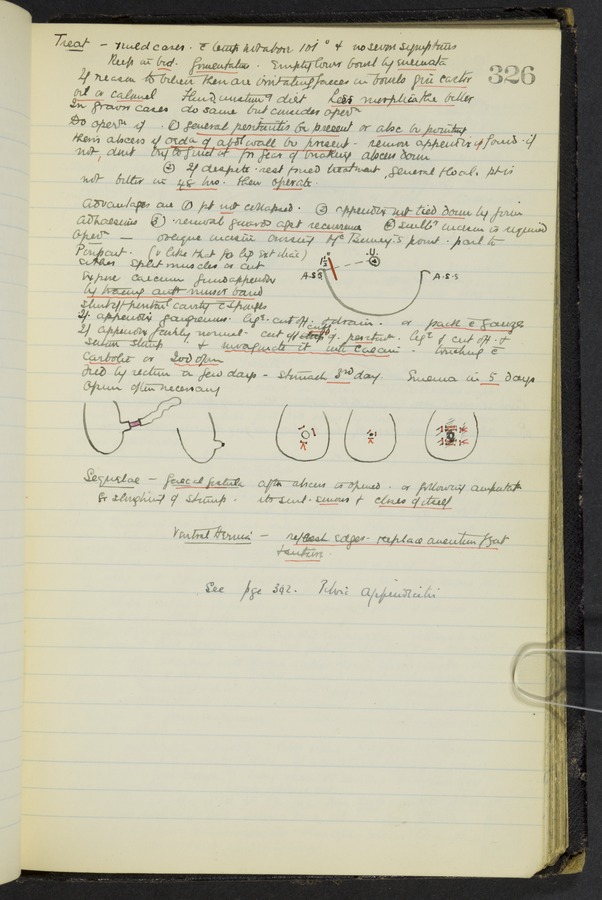 Treat - mild cases. c temp not above 101° & no severe symptoms
Keep in bed. Fomentation. Empty lower bowel by enemata
326
If reason to believe there are irritating faeces in bowels give castor
oil or calomel Fluid diet Less morphia the better
In graver cases do same but consider oper^n
Do oper^n if. ① general peritonitis be present or absc be pointing
there's abscess if oedema of abd wall be present - remove appendix if found. if
not, dont try to find it for fear of breaking abscess down
② If despite rest & med treatment, general & local, pt is
not better in 48 hrs. then operate.
Advantages are ① pt not collapsed. ② appendix not tied down by firm
adhesions ③ removal guards agst recurrence ④ small incision is required
Oper^n - oblique incision crossing McBurney's point. parl to
Poupart. (
either split muscles or cut
A.S.S
U
A.S.S
Expose caecum find appendix
by tracing ant muscle band
Shut off periton^l cavity c sponges
If appendix gangrenous. lig^r. cut off. & drain. or pack c gauze
If appendix fairly normal. cut cuff of periton. lig^r & cut off. &
suture stump & invaginate it into caecum. touching c
carbolic or
Feed by rectum a few days - stomach 3rd day. Enema in 5 days
Opium often necessary
Sequelae - faecal fistula after abscess is opened. or following amputat^n
& sloughing of stump. its small. sinuous & closes of itself
Ventral Hernia - refresh edges. replace omentum &
suture.
See pge 392. Pelvic appendicitis